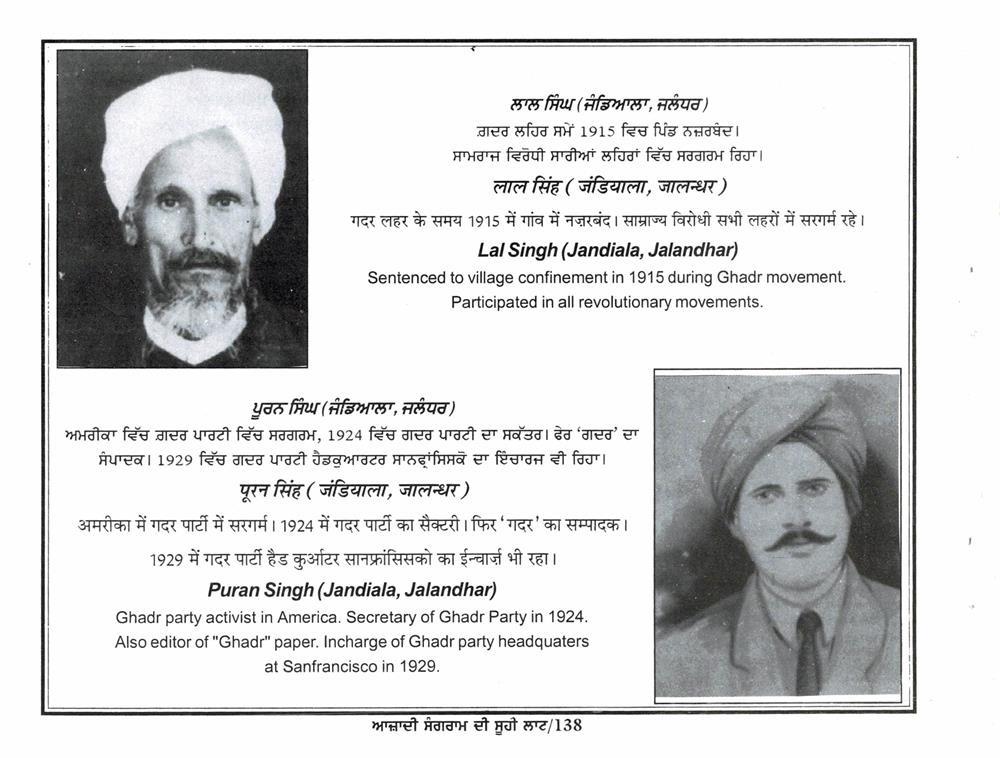 ਲਾਲ ਸਿੰਘ (ਜੰਡਿਆਲਾ, ਜਲੰਧਰ)
ਗ਼ਦਰ ਲਹਿਰ ਸਮੇਂ 1915 ਵਿਚ ਪਿੰਡ ਨਜ਼ਰਬੰਦ।
ਸਾਮਰਾਜ ਵਿਰੋਧੀ ਸਾਰੀਆਂ ਲਹਿਰਾਂ ਵਿੱਚ ਸਰਗਰਮ ਰਿਹਾ।
लाल सिंह ( जंडियाला, जालन्धर )
गदर लहर के समय 1915 में गांव में नज़रबंद। साम्राज्य विरोधी सभी लहरों में सरगर्म रहे।
Lal Singh (Jandiala, Jalandhar)
Sentenced to village confinement in 1915 during Ghadr movement.
Participated in all revolutionary movements.
ਪੂਰਨ ਸਿੰਘ (ਜੰਡਿਆਲਾ, ਜਲੰਧਰ)
ਅਮਰੀਕਾ ਵਿੱਚ ਗ਼ਦਰ ਪਾਰਟੀ ਵਿੱਚ ਸਰਗਰਮ, 1924 ਵਿੱਚ ਗਦਰ ਪਾਰਟੀ ਦਾ ਸਕੱਤਰ। ਫੇਰ ‘ਗਦਰ’ ਦਾ
ਸੰਪਾਦਕ। 1929 ਵਿੱਚ ਗਦਰ ਪਾਰਟੀ ਹੈਡਕੁਆਰਟਰ ਸਾਨਫ੍ਰਾਂਸਿਸਕੋ ਦਾ ਇੰਚਾਰਜ ਵੀ ਰਿਹਾ।
पूरन सिंह ( जंडियाला, जालन्धर )
अमरीका में गदर पार्टी में सरगर्म। 1924 में गदर पार्टी का सैक्टरी। फिर ‘गदर’ का सम्पादक।
1929 में गदर पार्टी हैड कुर्आटर सानफ्रांसिसको का ईन्चार्ज़ भी रहा।
Puran Singh (Jandiala, Jalandhar)
Ghadr party activist in America. Secretary of Ghadr Party in 1924.
Also editor of "Ghadr" paper. Incharge of Ghadr party headquaters
at Sanfrancisco in 1929.
ਆਜ਼ਾਦੀ ਸੰਗਰਾਮ ਦੀ ਸੂਹੀ ਲਾਟ/138